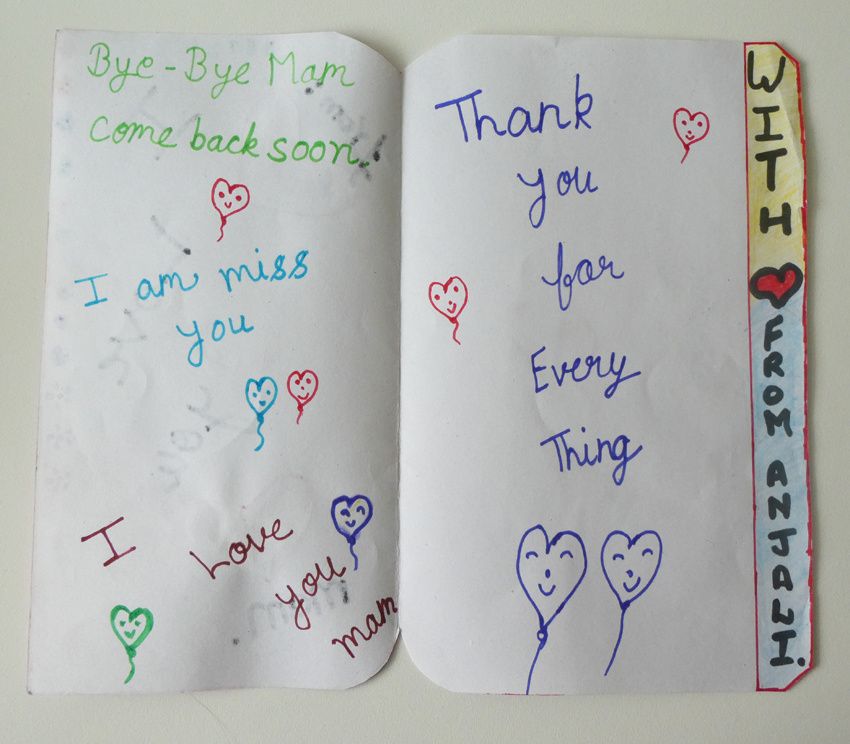 Bye-Bye Mam
come back soon.
I am miss
you
I Love
you
mam
Thank
you
for
Every
Thing
WITH ❤ FROM ANJALI.